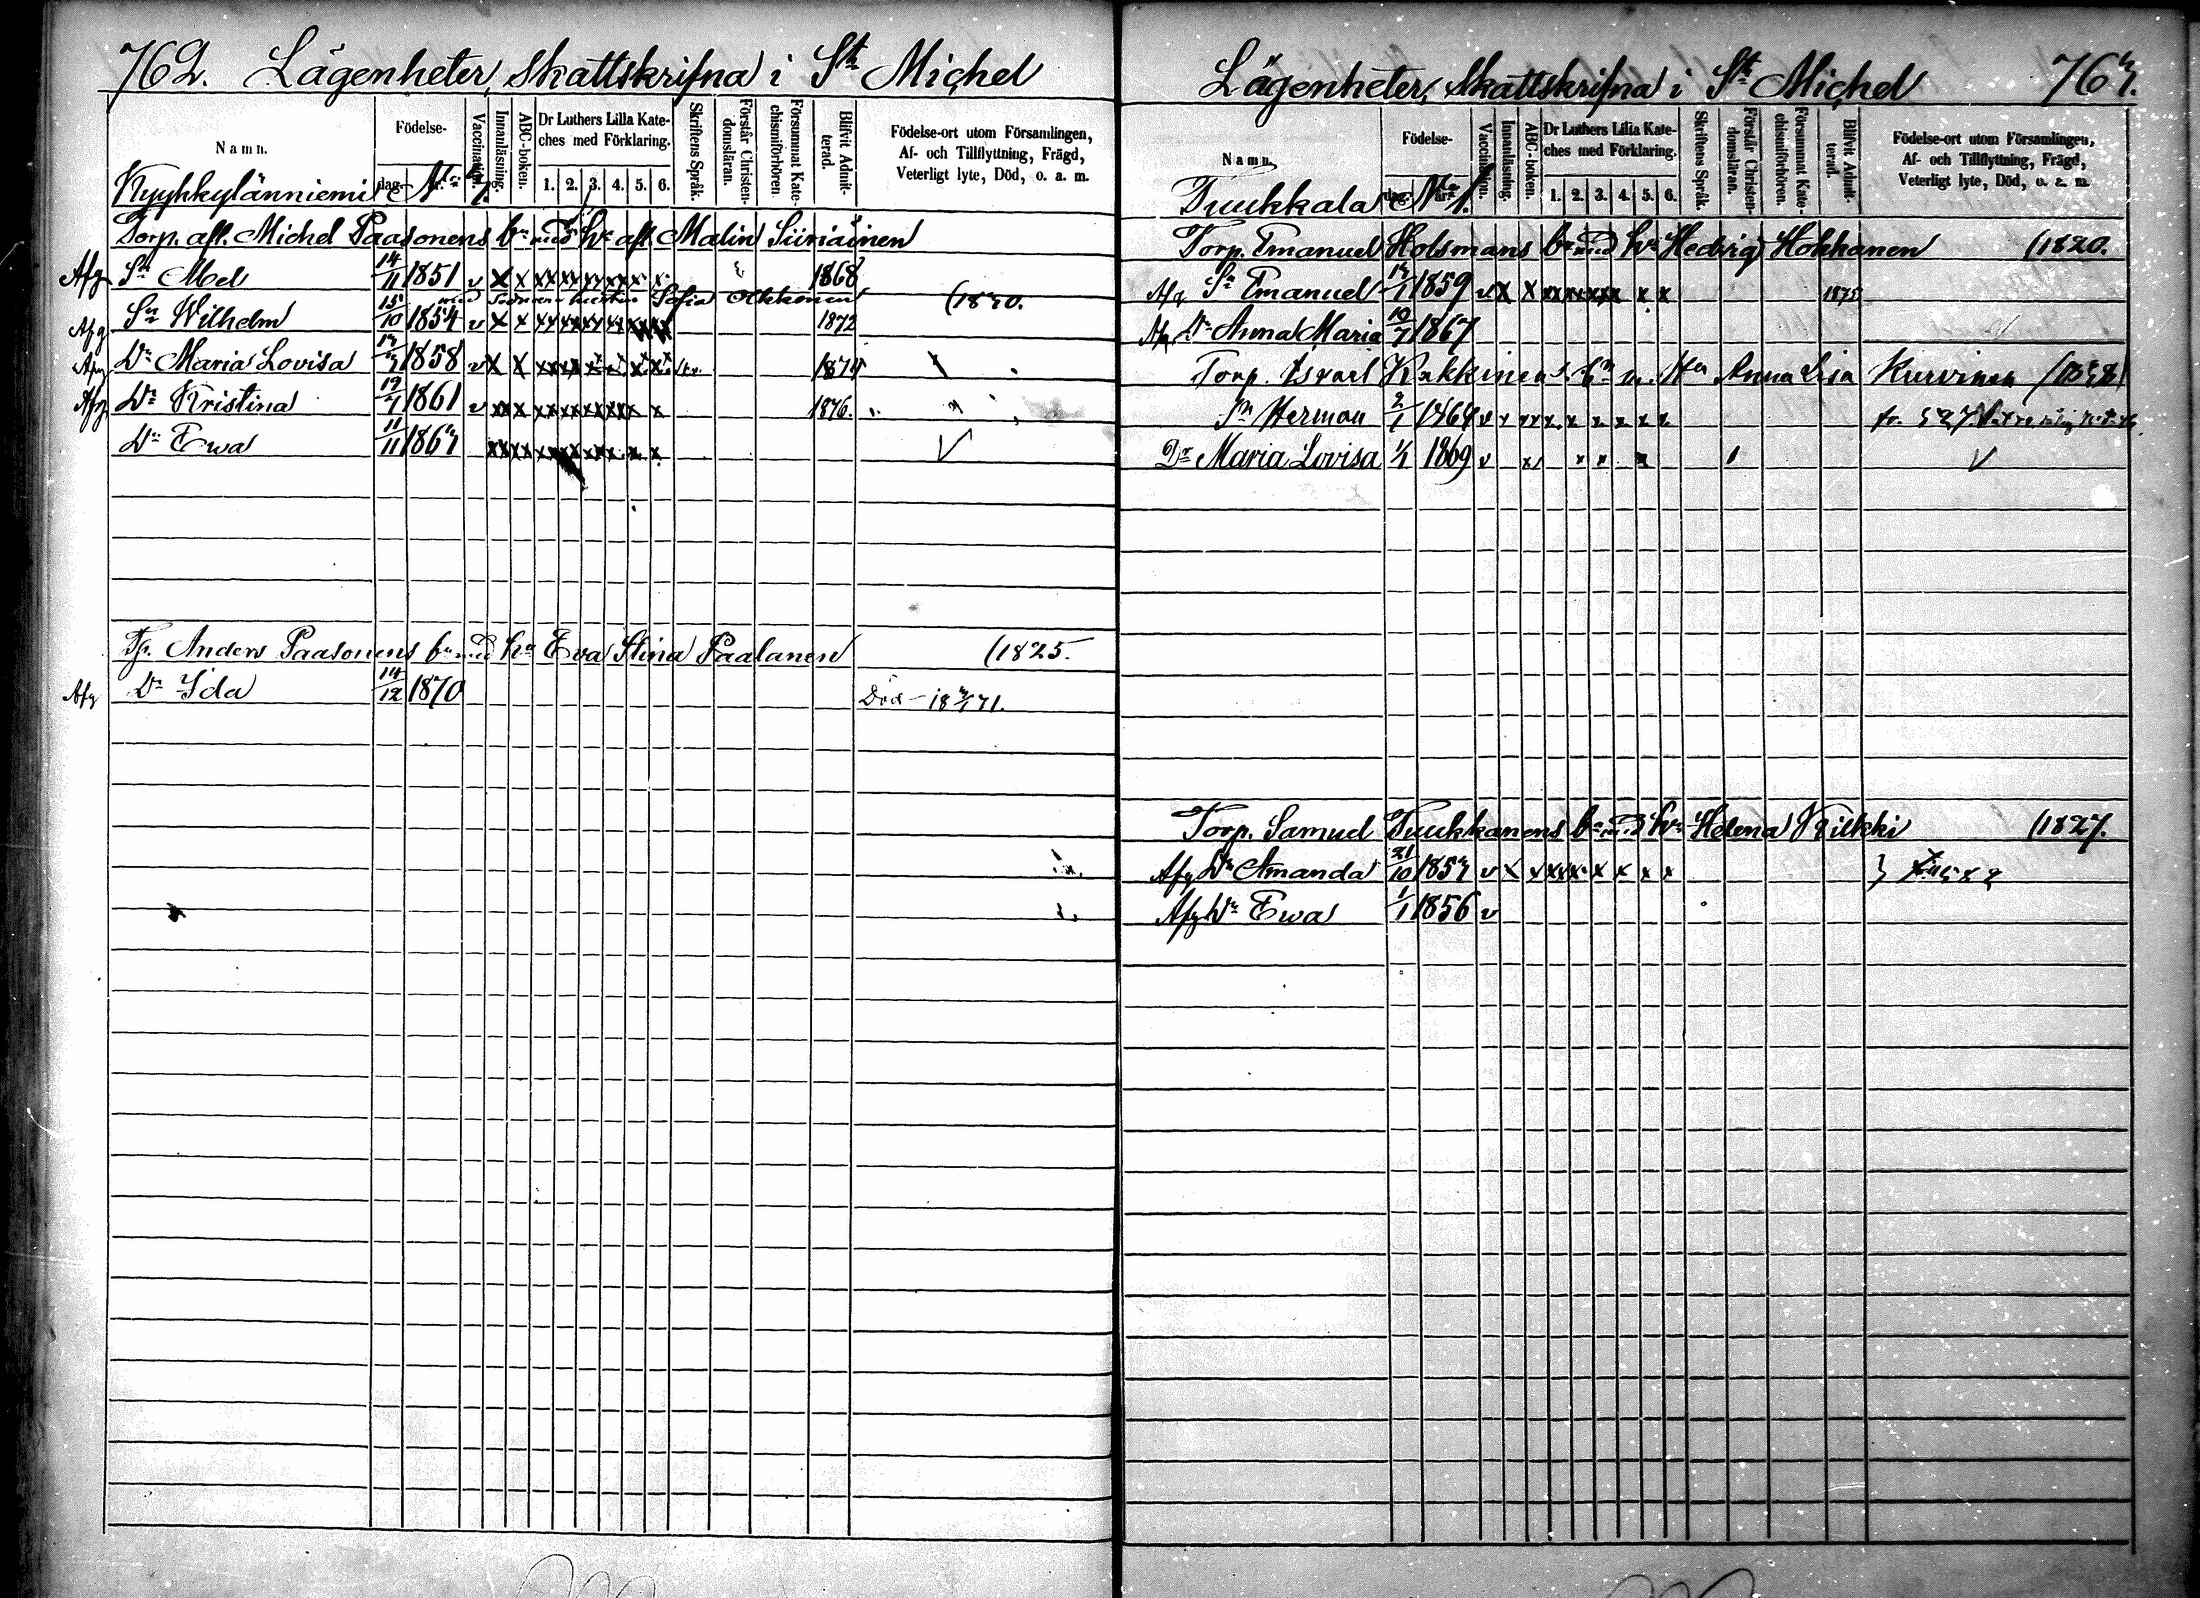 762. Lägenheter, skattskrifna i St Michel
Namn.
Födelse-
dag.
Vaccination.
Innanläsning.
ABC-boken.
Dr Luthers Lilla Kate-
ches med Förklaring.
1. 2. 3. 4. 5. 6.
Skriftens Språk.
Förstår Christen-
domsläran.
Försummat Kate-
chismiförhören.
Blifvit Admit-
terad.
Födelse-ort utom Församlingen,
Af- och Tillflyttning, Frägd,
Veterligt lyte, Död, o. a. m.
Kyyhkylänniemi No 1.
Torp. afl. Michel Paasonens bn med hu afl. Malin Siiriäinen
Afg Sn Mel 14/11 1851 v x x x x x x x x x x 1868
hustru Sofia Olkkonen (1840.
Afg Sn Wilhelm 15/10 1854 v x x x x x x x x 1872
Afg Dr Maria Lovisa 1858 v x x x x x x x x 1875
Afg Dr Kristina 1861 v x x x x x x x x 1876.
Dr Ewa 11/11 1867 x x x x x x x x
Tp. Anders Paasonens bn med hu Eva Stina Paalanen (1825.
Afg Dr Ida 14/12 1870 Död 18 3/1 71.
Lägenheter, skattskrifna i St Michel 763.
Namn.
Födelse-
dag. år.
Vaccination.
Innanläsning.
ABC-boken.
Dr Luthers Lilla Kate-
ches med Förklaring.
1. 2. 3. 4. 5. 6.
Skriftens Språk.
Förstår Christen-
domsläran.
Försummat Kate-
chismiförhören.
Blifvit Admit-
terad.
Födelse-ort utom Församlingen,
Af- och Tillflyttning, Frägd,
Veterligt lyte, Död, o. a. m.
Tuukkala No 1.
Torp. Emanuel Holsmans bn med hu Hedvig Hokkanen (1820.
Afg Sn Emanuel 1859 v x x x x x x x x 1875
Afg Dr Anna Maria 1867
Torp. Israel Kukkinens bn m. Hu Anna Lisa Kurvinen
Sn Herman 2/1 1864 v x x x x x x x x fr. 527
Dr Maria Lovisa 1/1 1869 v x x x x
Torp. Samuel Tuukkanens bn med hu Helena Kilkki (1827.
Afg Dr Amanda 21/10 1853 v x x x x x x x x } 582
Afg Dr Ewa 1/1 1856 v